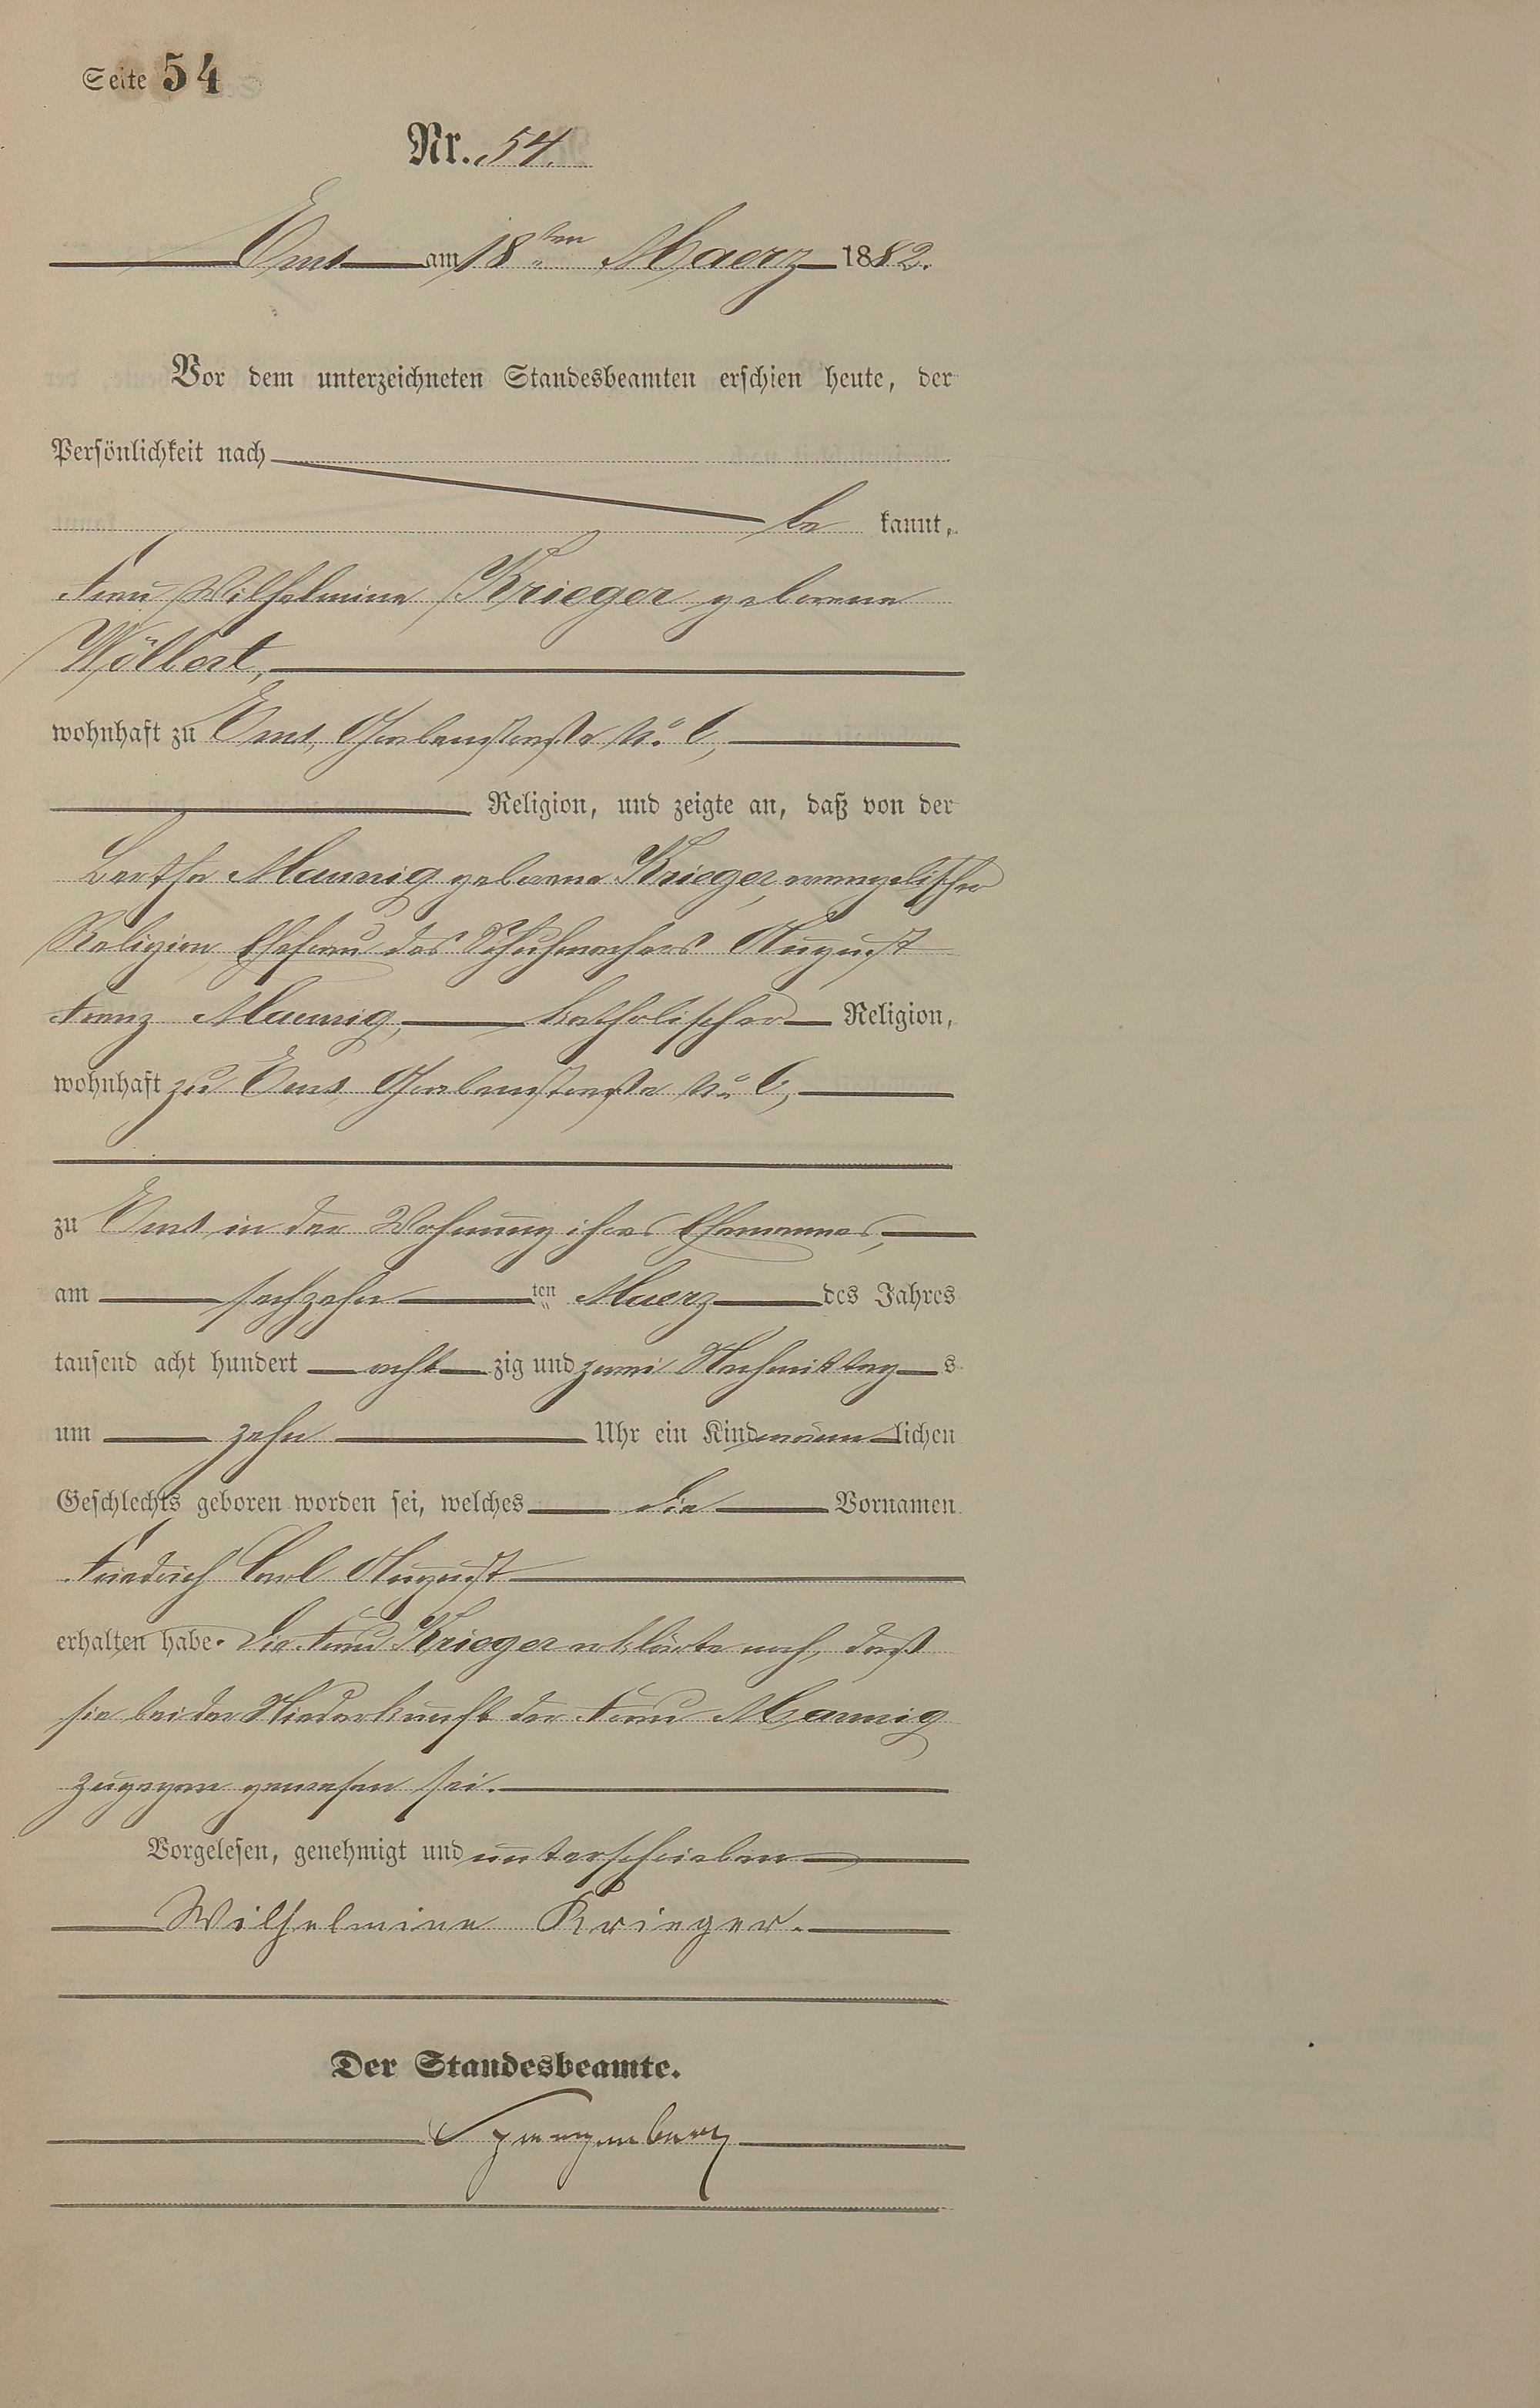 Seite 54
Nr. 54.
Ems am 18ten Maerz 1882.
Vor dem unterzeichneten Standesbeamten erschien heute, der
Persönlichkeit nach
be kannt,
Frau Wilhelmine Krieger geborene
Wölbert,
wohnhaft zu Ems, Grabenstraße No. 6,
Religion, und zeigte an, daß von der
Bertha Mannig geborene Krieger, evangelischer
Religion, Ehefrau des Schuhmachers August
Franz Mannig, katholischer Religion,
wohnhaft zu Ems Grabenstraße No. 6,
zu Ems in der Wohnung ihres Ehemannes,
am sechzehn ten Maerz des Jahres
tausend acht hundert acht zig und zwei Nachmittag s
um zehn Uhr ein Kind männ lichen
Geschlechts geboren worden sei, welches die Vornamen
Friedrich Carl August
erhalten habe. Die Frau Krieger erklärte noch, daß
sie bei der Niederkunft der Frau Mannig
zugegen gewesen sei.
Vorgelesen, genehmigt und unterschrieben
Wilhelmine Krieger.
Der Standesbeamte.
Spangenberg